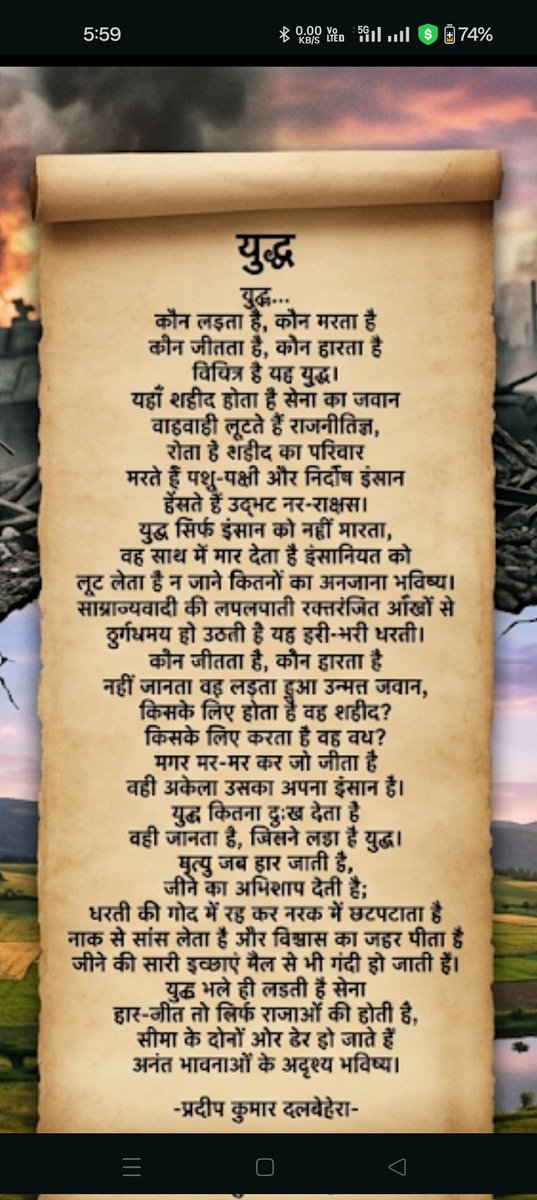 5:59 0.00 KB/S Vo LTED 5G $ 74%
युद्ध
युद्ध...
कौन लड़ता है, कौन मरता है
कौन जीतता है, कौन हारता है
विचित्र है यह युद्ध।
यहाँ शहीद होता है सेना का जवान
वाहवाही लूटते हैं राजनीतिज्ञ,
रोता है शहीद का परिवार
मरते हैं पशु-पक्षी और निर्दोष इंसान
हँसते हैं उद्भट नर-राक्षस।
युद्ध सिर्फ इंसान को नहीं मारता,
वह साथ में मार देता है इंसानियत को
लूट लेता है न जाने कितनों का अनजाना भविष्य।
साम्राज्यवादी की लपलपाती रक्तरंजित आँखों से
दुर्गंधमय हो उठती है यह हरी-भरी धरती।
कौन जीतता है, कौन हारता है
नहीं जानता वह लड़ता हुआ उन्मत्त जवान,
किसके लिए होता है वह शहीद?
किसके लिए करता है वह वध?
मगर मर-मर कर जो जीता है
वही अकेला उसका अपना इंसान है।
युद्ध कितना दुःख देता है
वही जानता है, जिसने लड़ा है युद्ध।
मृत्यु जब हार जाती है,
जीने का अभिशाप देती है;
धरती की गोद में रह कर नरक में छटपटाता है
नाक से सांस लेता है और विश्वास का जहर पीता है
जीने की सारी इच्छाएं मैल से भी गंदी हो जाती हैं।
युद्ध भले ही लडती है सेना
हार-जीत तो सिर्फ राजाओं की होती है,
सीमा के दोनों ओर ढेर हो जाते हैं
अनंत भावनाओं के अदृश्य भविष्य।
-प्रदीप कुमार दलबेहेरा-